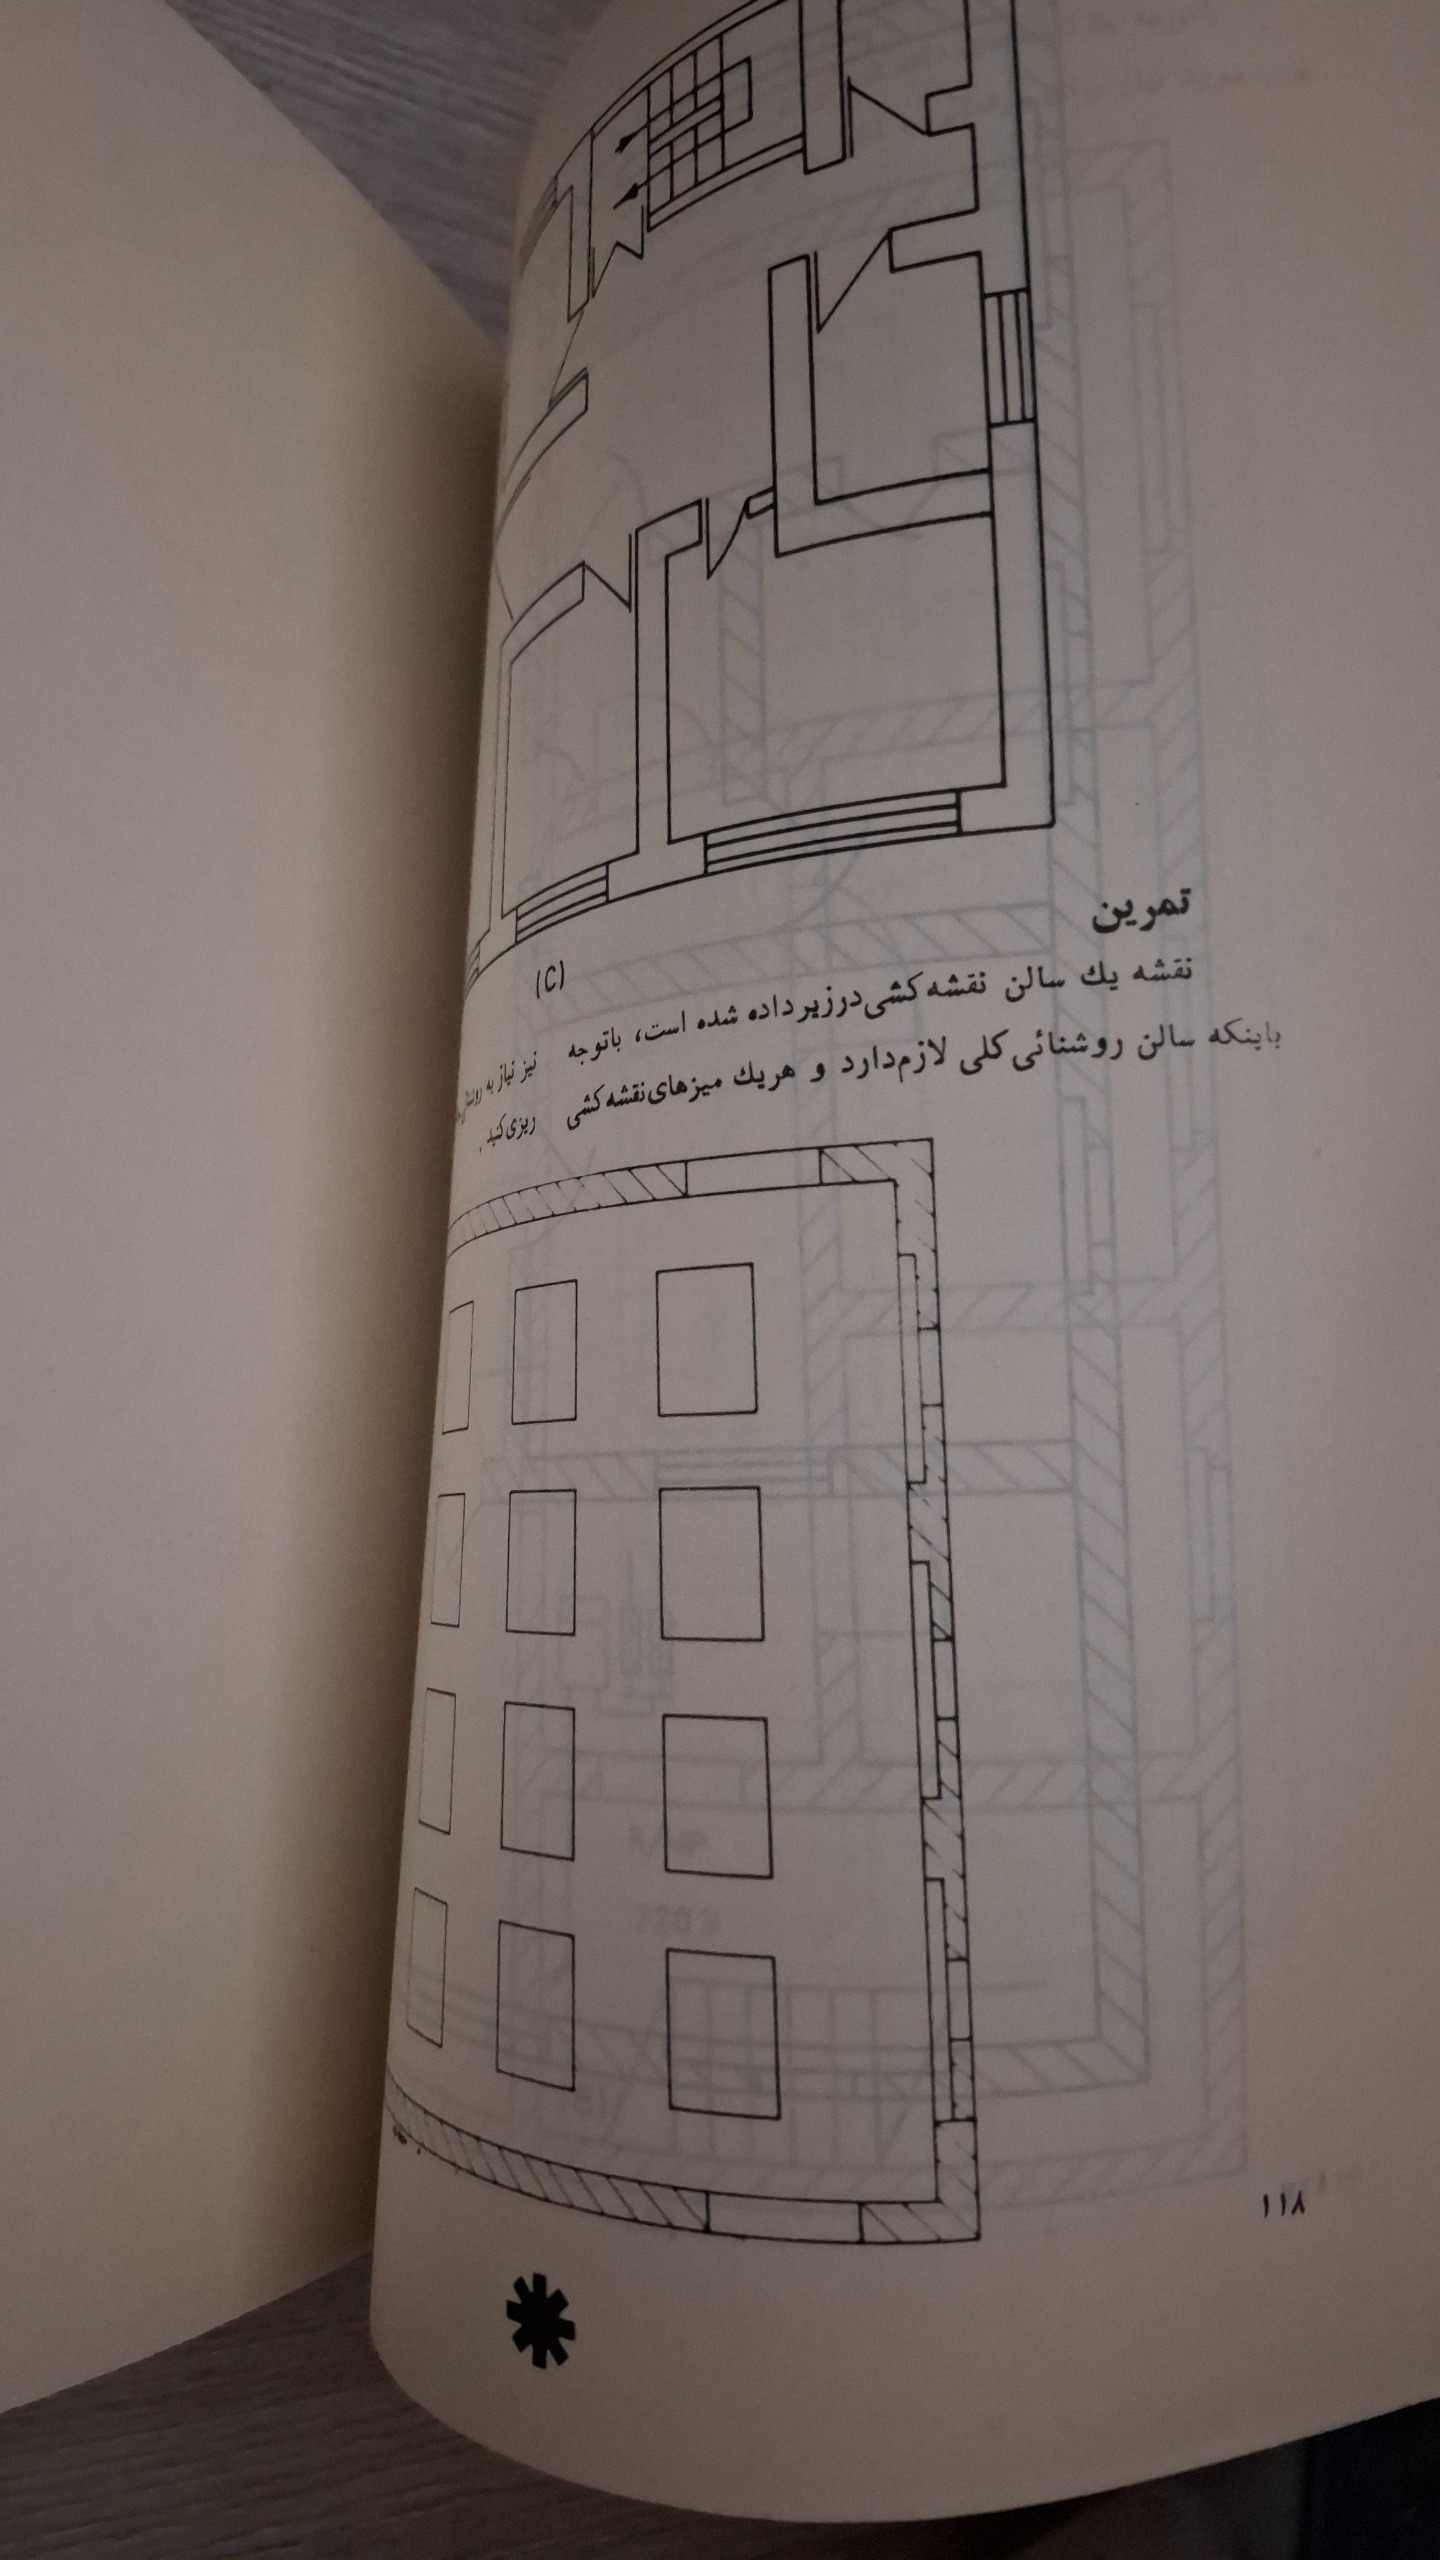 (C)
تمرین
نقشه يك سالن نقشه‌كشی درزير داده شده است، باتوجه
باینکه سالن روشنائی کلی لازم‌دارد و هريك میزهای‌نقشه‌کشی
نیز نیاز به
ریزی‌کنید.
۱۱۸